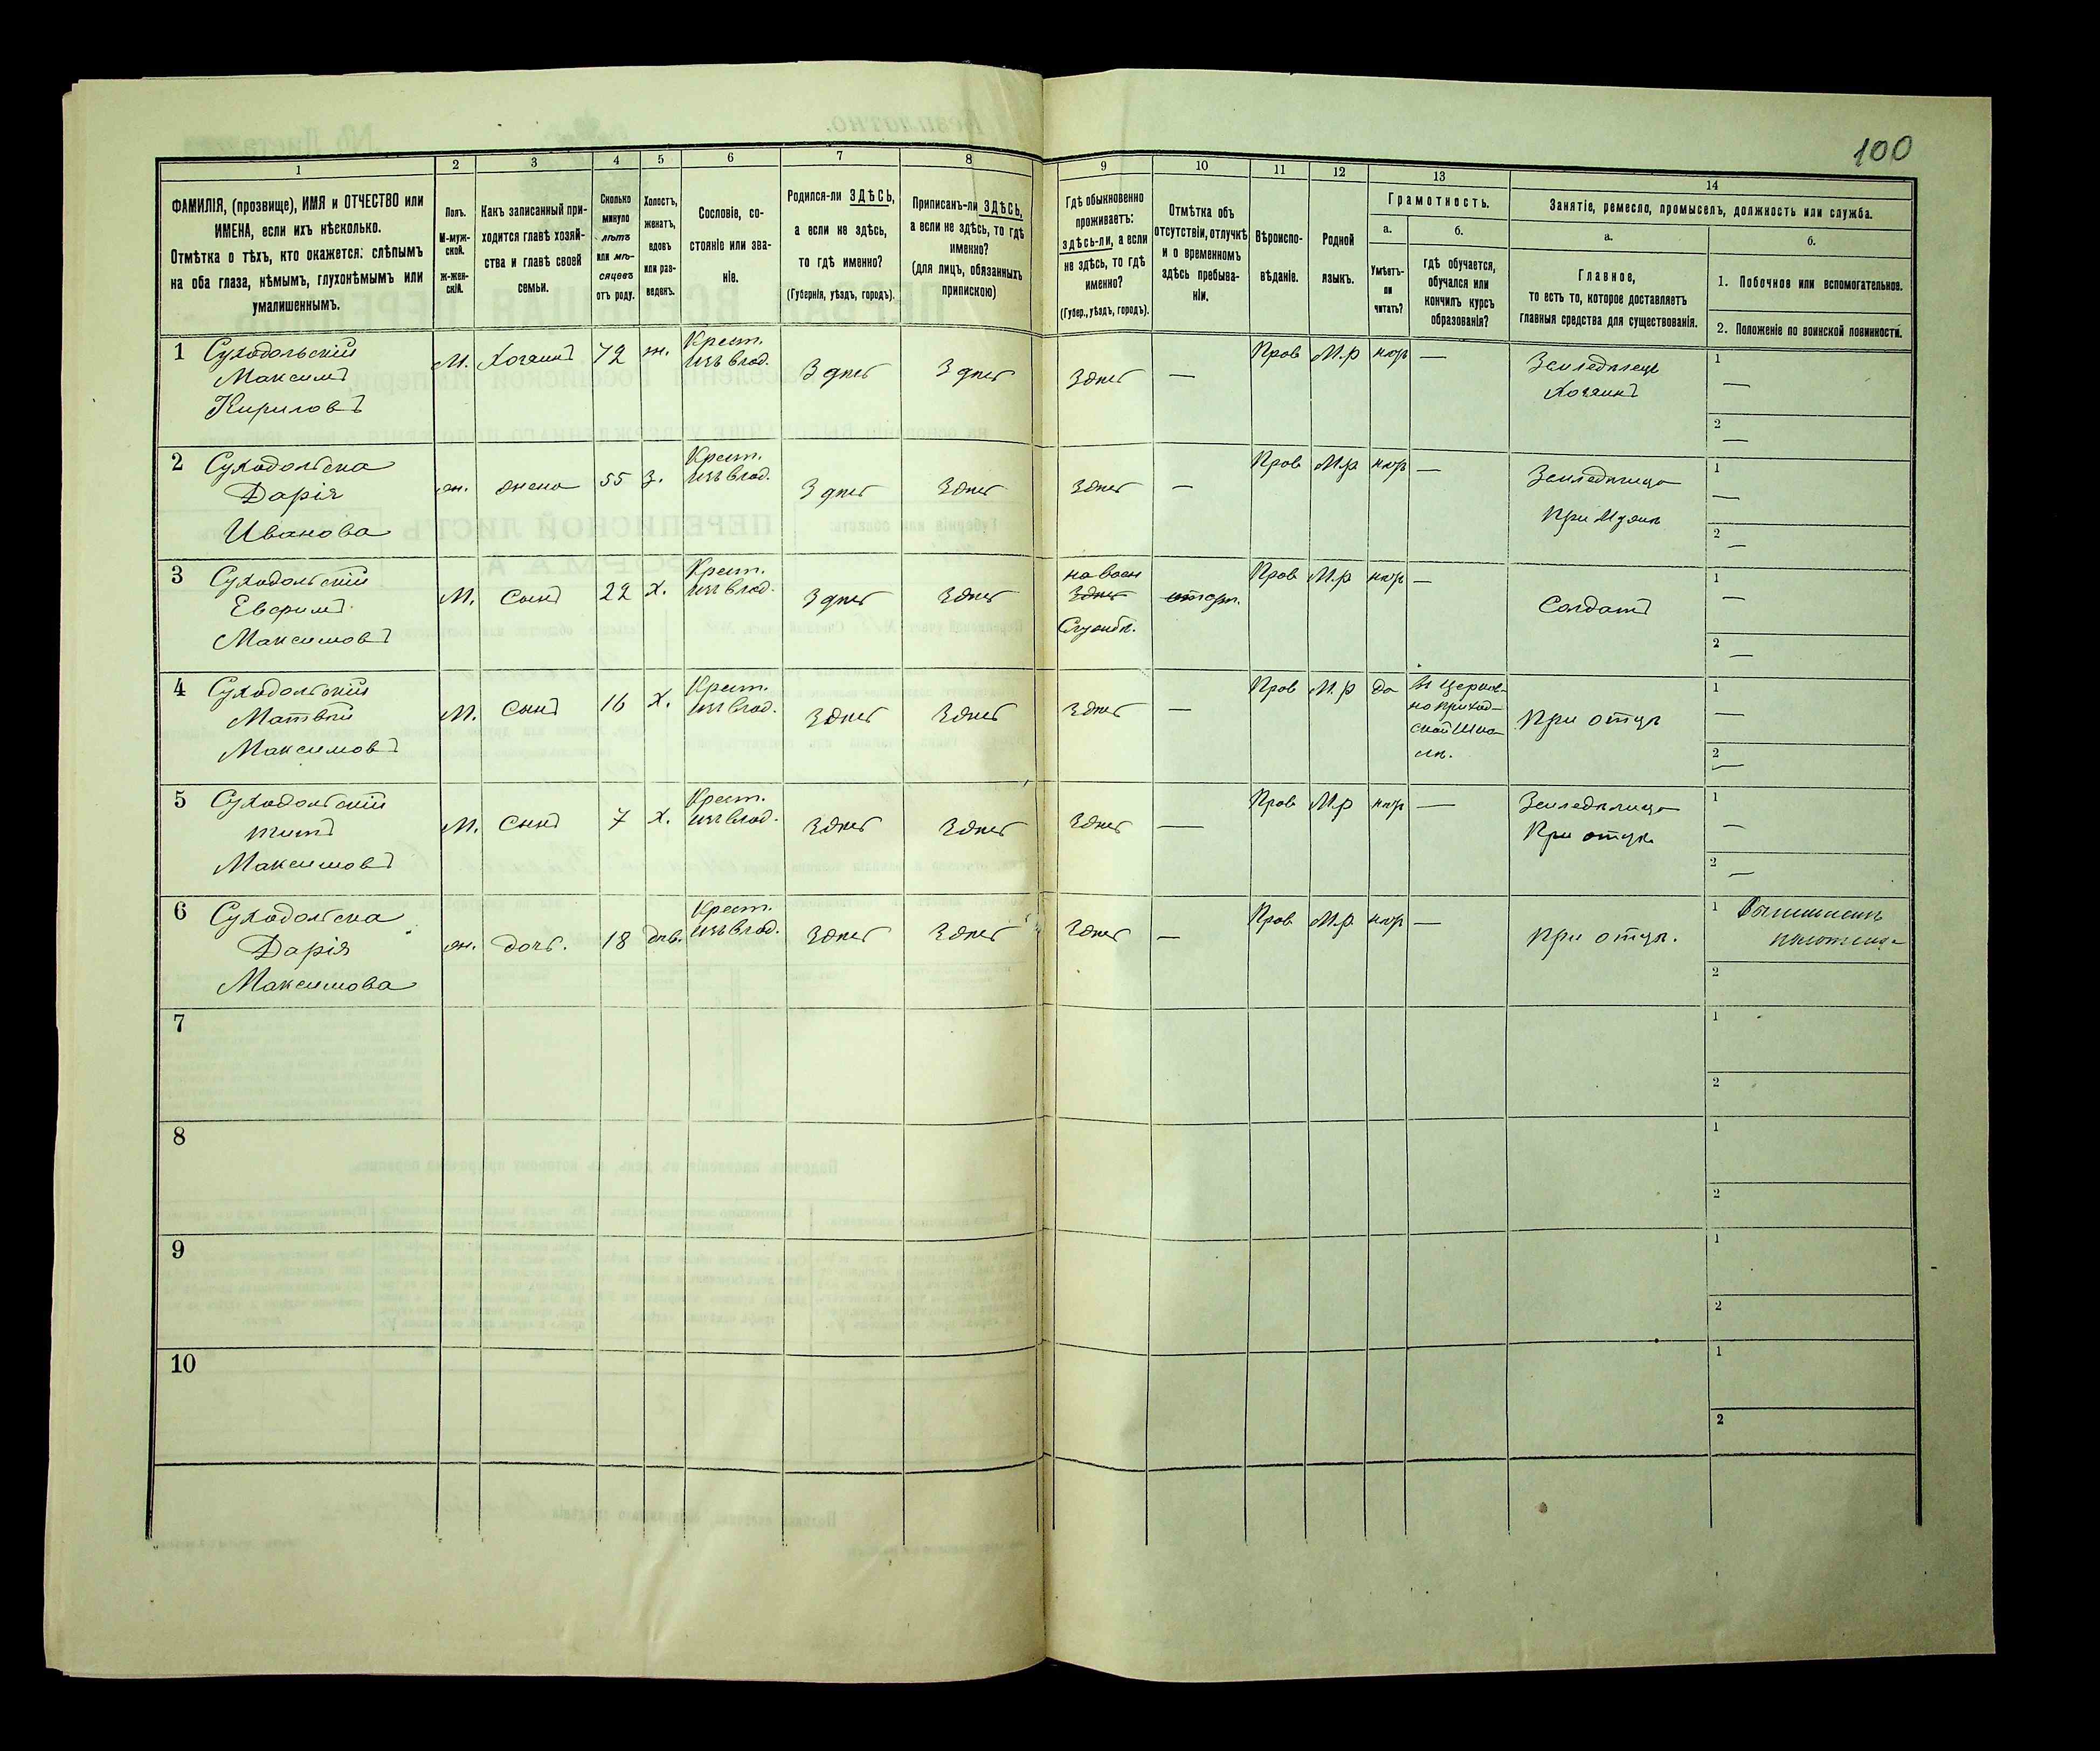 100
1
2
3
4
5
6
7
8
9
10
11
12
13
14
ФАМИЛІЯ, (прозвище), ИМЯ и ОТЧЕСТВО или
ИМЕНА, если ихъ нѣсколько.
Отмѣтка о тѣхъ, кто окажется: слѣпымъ
на оба глаза, нѣмымъ, глухонѣмымъ или
умалишеннымъ.
Полъ.
М-муж-
ской.
Ж-жен-
скій.
Какъ записанный при-
ходится главѣ хозяй-
ства и главѣ своей
семьи.
Сколько
минуло
лѣтъ
или мѣ-
сяцевъ
отъ роду.
Холостъ,
женатъ,
вдовъ
или раз-
веденъ.
Сословіе, со-
стояніе или зва-
ніе.
Родился-ли ЗДѢСЬ,
а если не здѣсь,
то гдѣ именно?
(Губернія, уѣздъ, городъ).
Приписанъ-ли ЗДѢСЬ,
а если не здѣсь, то гдѣ
именно?
(для лицъ, обязанныхъ
припискою)
Гдѣ обыкновенно
проживаетъ:
здѣсь-ли, а если
не здѣсь, то гдѣ
именно?
(Губер., уѣздъ, городъ).
Отмѣтка объ
отсутствіи, отлучкѣ
и о временномъ
здѣсь пребыва-
ніи.
Вѣроиспо-
вѣданіе.
Родной
языкъ.
Грамотность.
а.
Умѣетъ-
ли
читать?
б.
гдѣ обучается,
обучался или
кончилъ курсъ
образованія?
Занятіе, ремесло, промыселъ, должность или служба.
а.
Главное,
то есть то, которое доставляетъ
главныя средства для существованія.
б.
1. Побочное или вспомогательное.
2. Положеніе по воинской повинности.
1 Суходольскій
Максимъ
Кириловъ
М. Хозяинъ 72 ж.
Крест.
изъ влад.
Здѣсь Здѣсь Здѣсь — Пров М.р нѣтъ —
Земледѣлецъ
Хозяинъ
1 —
2 —
2 Суходольска
Дарія
Иванова
ж. жена 55 з.
Крест.
изъ влад.
Здѣсь Здѣсь Здѣсь — Пров М.р нѣтъ —
Земледѣлица
При Мужѣ
1 —
2 —
3 Суходольскій
Евфимъ
Максимовъ
М. сынъ 22 х.
Крест.
изъ влад.
Здѣсь Здѣсь
на воен
Здѣсь
Службѣ.
Пров М.р нѣтъ —
Солдатъ
1 —
2 —
4 Суходольскій
Матвѣй
Максимовъ
М. сынъ 16 х.
Крест.
изъ влад.
Здѣсь Здѣсь Здѣсь — Пров М.р да
въ церков-
но приход-
ской шко-
лѣ.
При отцѣ
1 —
2 —
5 Суходольскій
Титъ
Максимовъ
М. сынъ 7 х.
Крест.
изъ влад.
Здѣсь Здѣсь Здѣсь — Пров М.р нѣтъ —
Земледѣлица
При отцѣ
1 —
2 —
6 Суходольска
Дарія
Максимова
ж. дочь. 18 дѣв.
Крест.
изъ влад.
Здѣсь Здѣсь Здѣсь — Пров М.р нѣтъ —
При отцѣ.
1
2
7
1
2
8
1
2
9
1
2
10
1
2